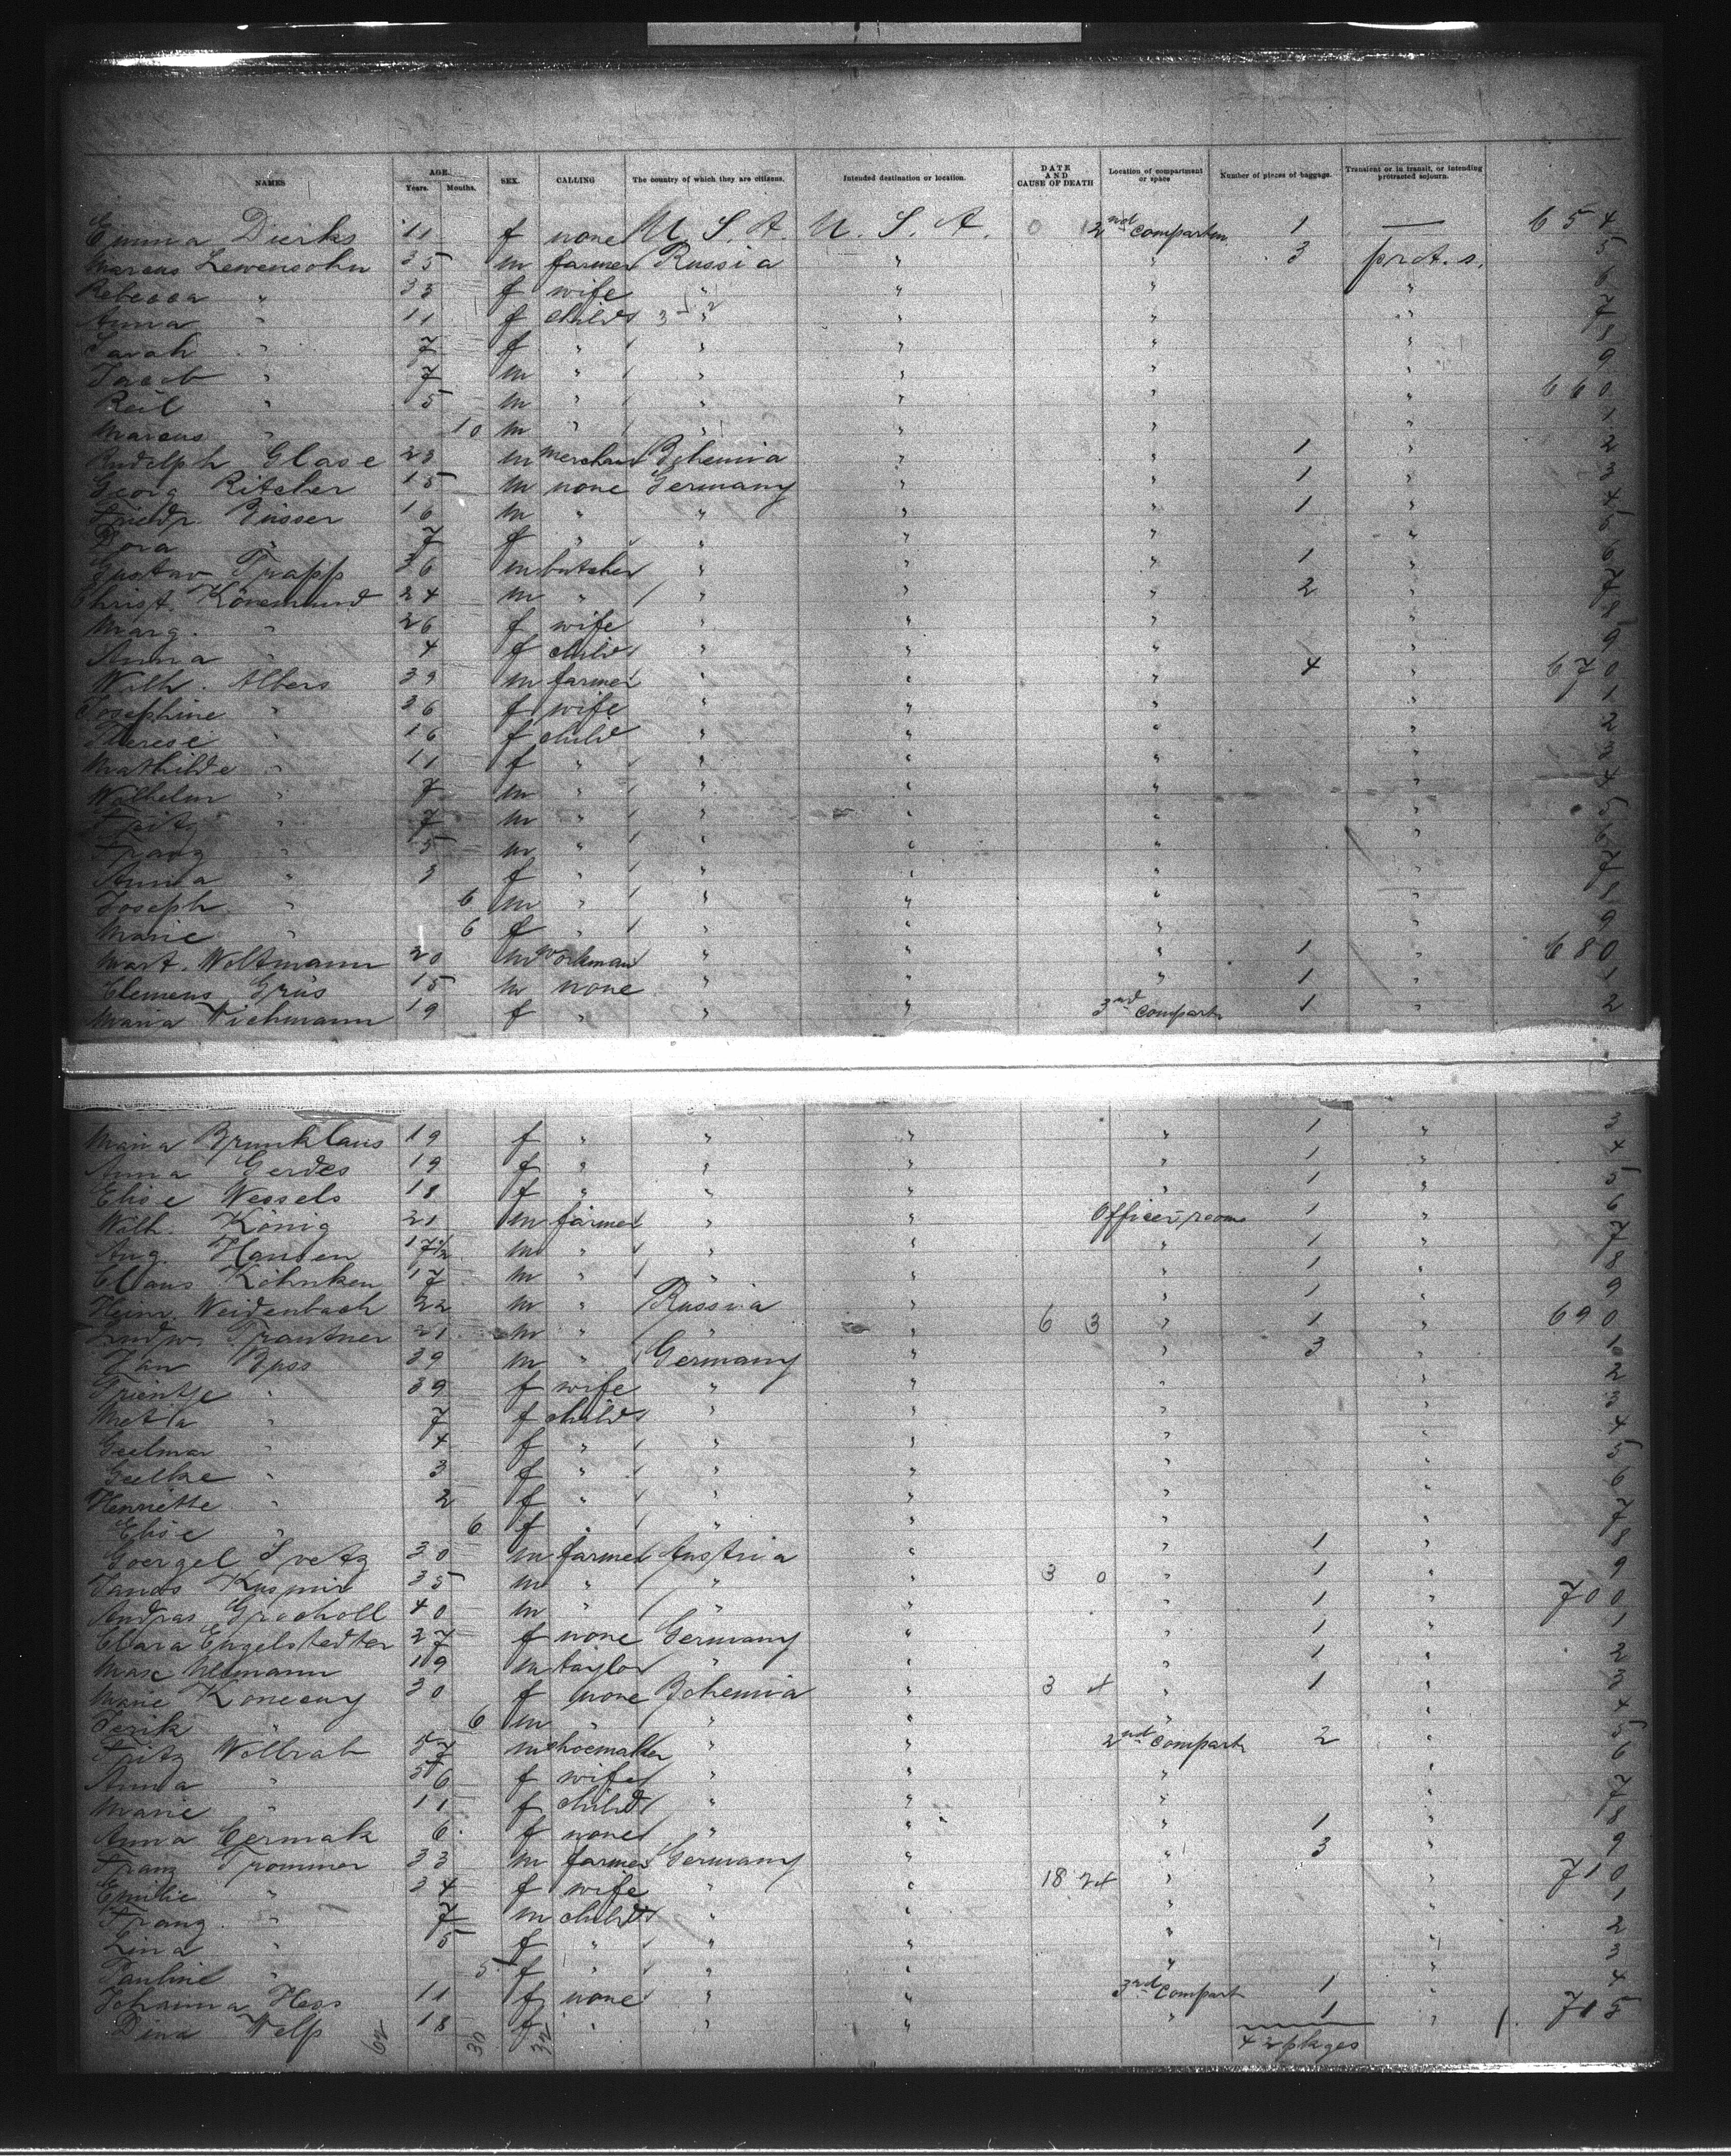 NAMES AGE. Years. Months. SEX. CALLING The country of which they are citizens. Intended destination or location. DATE AND CAUSE OF DEATH Location of compartment or space Number of pieces of baggage. Transient or in transit, or intending protracted sojourn.
Emma Dierks 11 f none U.S.A. U.S.A. 0 2nd compartm 1 — 654
Marcus Lewensohn 35 m farmer Russia " " 3 prot. s. 5
Rebecca " 33 f wife " " " " 6
Anna " 11 f child " " " " 7
Sarah " 7 f " " " " " 8
Jacob " 7 m " " " " " 9
Reil " 5 m " " " " " 660
Marcus " 10 m " " " " " 1
Rudolph Glase 23 m merchant Bohemia " " 1 " 2
Georg Ritscher 15 m none Germany " " 1 " 3
Friedr. Büsser 16 m " " " " 1 " 4
Dora " 7 f " " " " " 5
Gustav Trapp 36 m butcher " " " 1 " 6
Christ. Könemund 24 m " " " " 2 " 7
Marg. " 26 f wife " " " " 8
Anna " 4 f child " " " " 9
Wilh. Albers 39 m farmer " " " 4 " 670
Josephine " 36 f wife " " " " 1
Therese " 16 f child " " " " 2
Mathilde " 11 f " " " " " 3
Wilhelm " 7 m " " " " " 4
Fritz " 7 m " " " " " 5
Franz " 5 m " " " " " 6
Anna " 3 f " " " " " 7
Joseph " 6 m " " " " " 8
Marie " 6 f " " " " " 9
Mart. Woltmann 20 m workman " " " 1 " 680
Clemens Grüs 15 m none " " " 1 " 1
Maria Wichmann 19 f " " " 3rd compart. 1 " 2
Maria Brunklaus 19 f " " " " 1 " 3
Anna Gerdes 19 f " " " " 1 " 4
Elise Wessels 18 f " " " " 1 " 5
Wilh. König 21 m farmer " " Officer's room 1 " 6
Aug. Hansen 17½ m " " " " 1 " 7
Claus Köhnken 17 m " " " " 1 " 8
Heinr. Weidenbach 22 m " Russia " " 1 " 9
Ludw. Trautner 21 m " " " 6 3 " 1 " 690
Jan Buss 39 m " Germany " " 3 " 1
Trientje " 39 f wife " " " " 2
Meta " 7 f child " " " " 3
Geelmar " 4 f " " " " " 4
Geelke " 3 f " " " " " 5
Henriette " 2 f " " " " " 6
Elise " 6 f " " " " " 7
Goergel Svetz 30 m farmer Austria " " 1 " 8
Janos Kuspmir 35 m " " " 3 0 " 1 " 9
Andras Grocholl 40 m " " " " 1 " 700
Clara Engelstedter 27 f none Germany " " 1 " 1
Max Neumann 19 m taylor " " " 1 " 2
Marie Konecny 30 f none Bohemia " 3 4 " 1 " 3
Jerik " 6 m " " " " " 4
Fritz Wolbrab 57 m shoemaker " " 2nd compart 2 " 5
Anna " 56 f wife " " " " 6
Marie " 11 f child " " " " 7
Anna Cermak 6 f none " " " 1 " 8
Franz Trommer 33 m farmer Germany " " 3 " 9
Emilie " 34 f wife " " 18 24 " " 710
Franz " 7 m child " " " " 1
Lina " 5 f " " " " " 2
Pauline " 5 f " " " " " 3
Johanna Hess 11 f none " " 3rd compart 1 " 4
Dina Welp 18 f " " " " 1 " 715
62 30 32 42 pkges